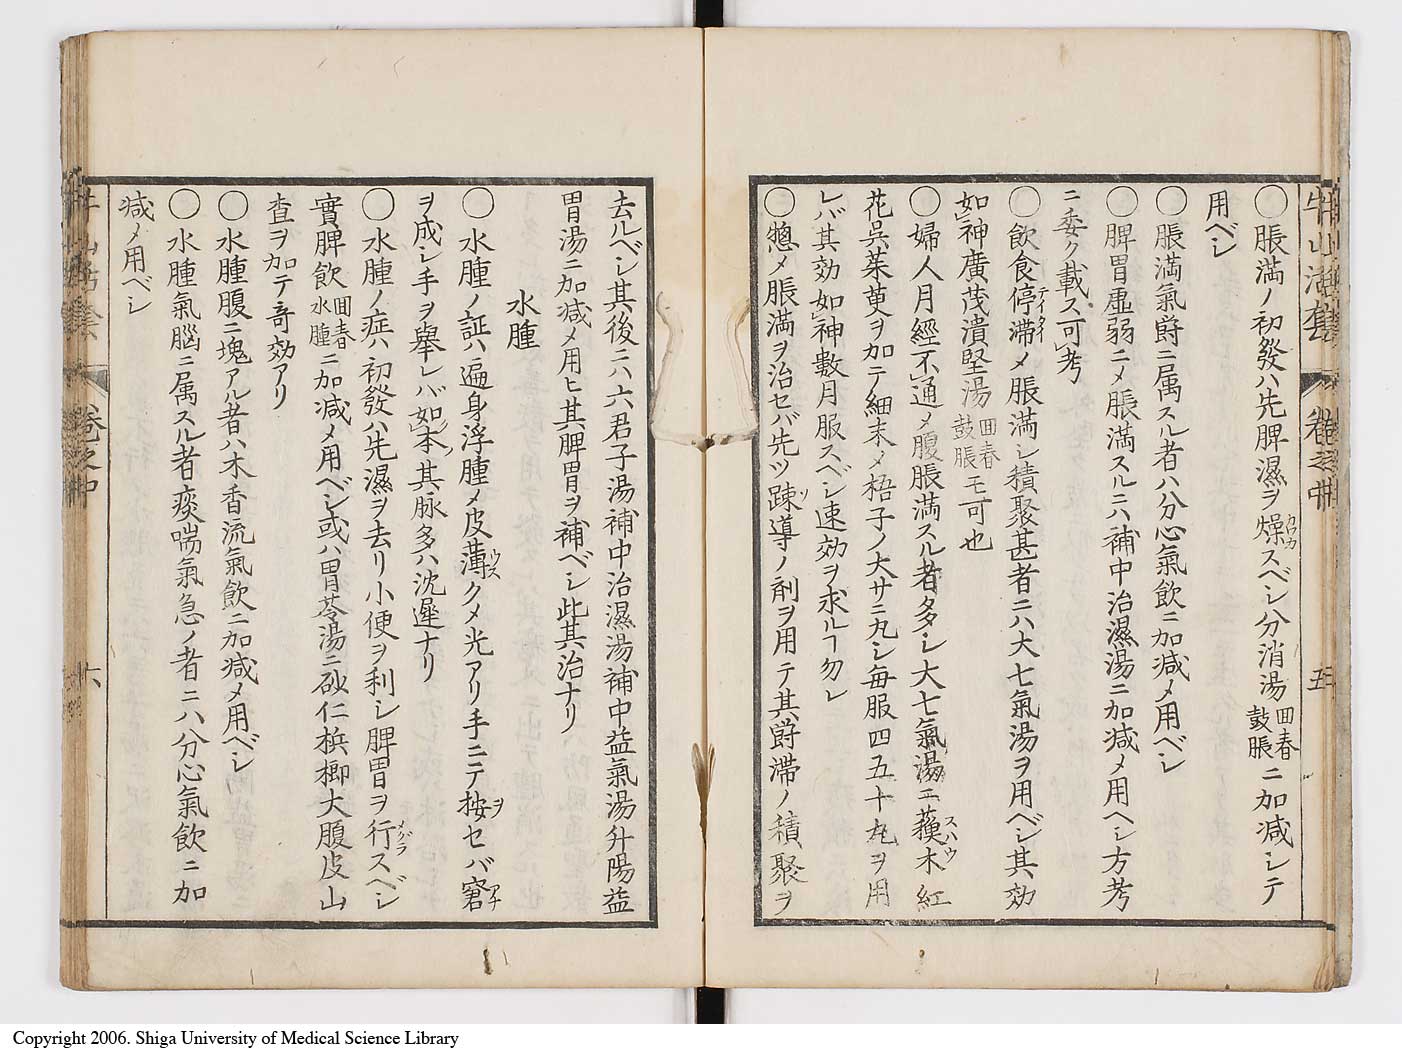 牛山活套 卷之中 五
〇脹満ノ初發ハ先脾濕ヲ燥カワカスベシ分消湯回春鼓脹ニ加減シテ
用ベシ
〇脹満氣爵ニ属スル者ハ分心氣飲ニ加減メ用ベシ
〇脾胃虚弱ニメ脹満スルニハ補中治濕湯ニ加減メ用ヘシ方考
ニ委ク載ス可考
〇飲食停滞テイタイメ脹満シ積聚甚者ニハ大七氣湯ヲ用ベシ其効
如神廣茂潰堅湯回春鼓脹モ可也
〇婦人月經不通メ腹脹満スル者多シ大七氣湯ニ蘓木スハウ紅
花呉茱萸ヲ加テ細末メ梧子ノ大サニ丸シ毎服四五十丸ヲ用
レバ其効如神數月服スベシ速効ヲ求ルヿ勿レ
〇惣メ脹満ヲ治セバ先ツ疎ソ導ノ剤ヲ用テ其爵滞ノ積聚ヲ
去ルベシ其後ニハ六君子湯補中治濕湯補中益氣湯升陽益
胃湯ニ加減メ用ヒ其脾胃ヲ補ベシ此其治ナリ
水腫
〇水腫ノ証ハ遍身浮腫メ皮薄ウスクメ光アリ手ニテ按ヲセバ窘アナ
ヲ成シ手ヲ舉レバ如本ノ其脉多ハ沈遲ナリ
〇水腫ノ症ハ初發ハ先濕ヲ去リ小便ヲ利シ脾胃ヲ行メグラスベシ
實脾飲回春水腫ニ加減メ用ベシ或ハ胃苓湯ニ砂仁梹榔大腹皮山
査ヲ加テ奇効アリ
〇水腫腹ニ塊アル者ハ木香流氣飲ニ加減メ用ベシ
〇水腫氣腦ニ属スル者痰喘氣急ノ者ニハ分心氣飲ニ加
減メ用ベシ
卷之中 六